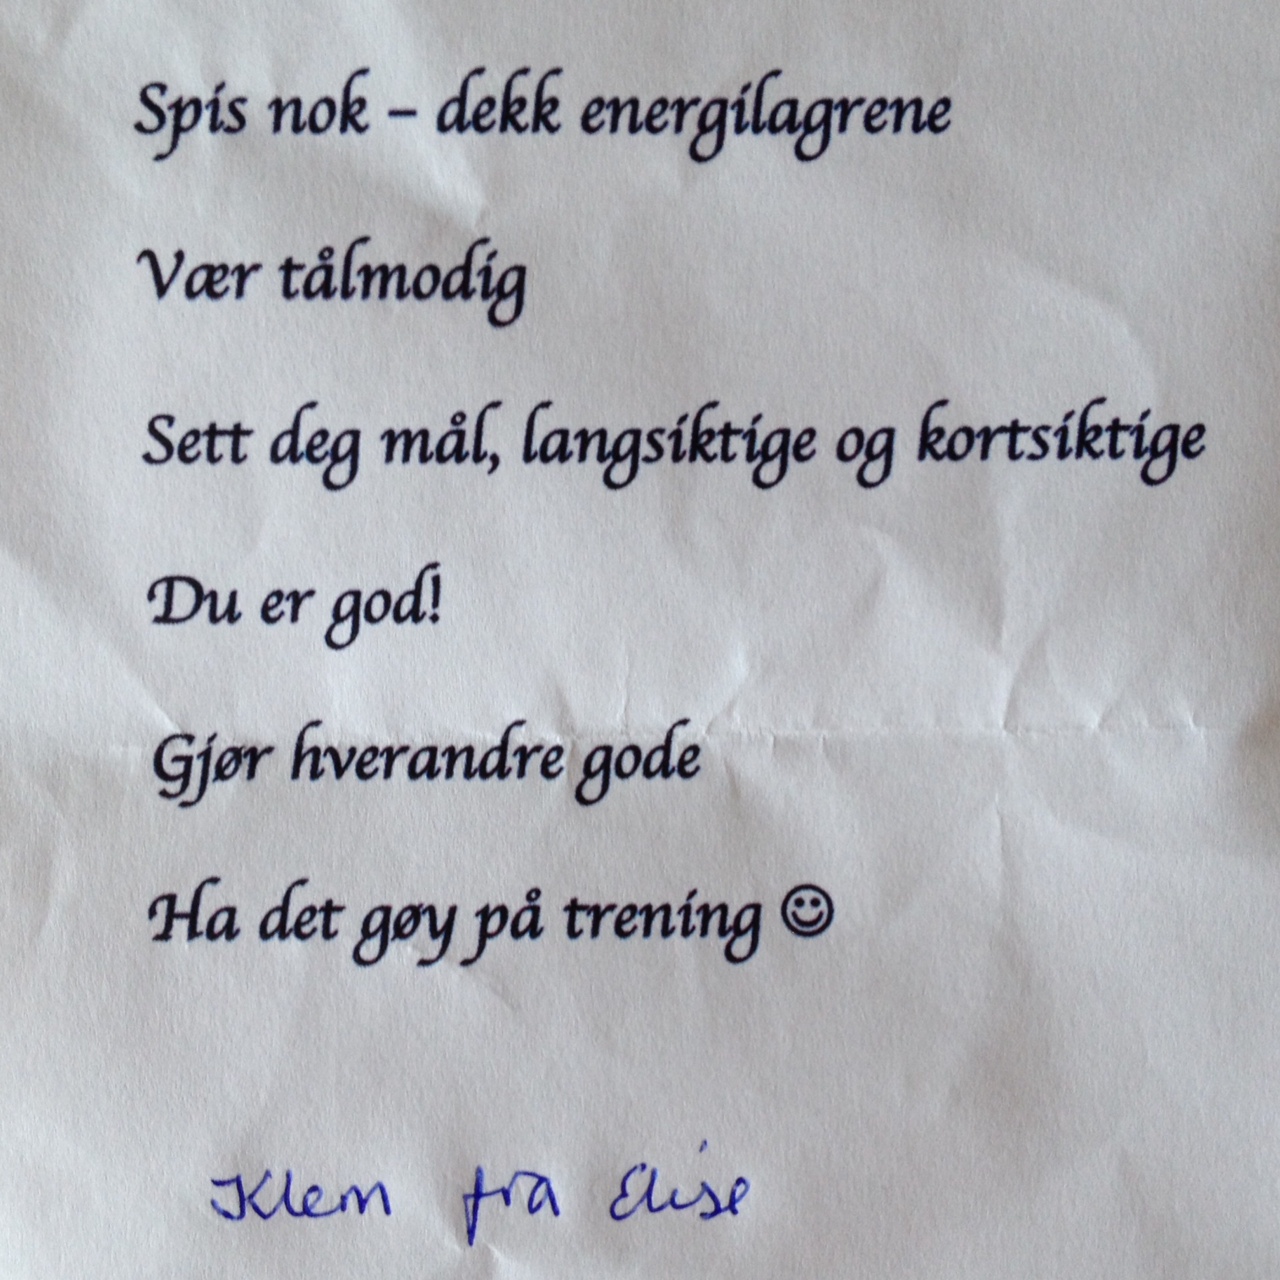 Spis nok – dekk energilagrene
Vær tålmodig
Sett deg mål, langsiktige og kortsiktige
Du er god!
Gjør hverandre gode
Ha det gøy på trening ☺
Klem fra Elise